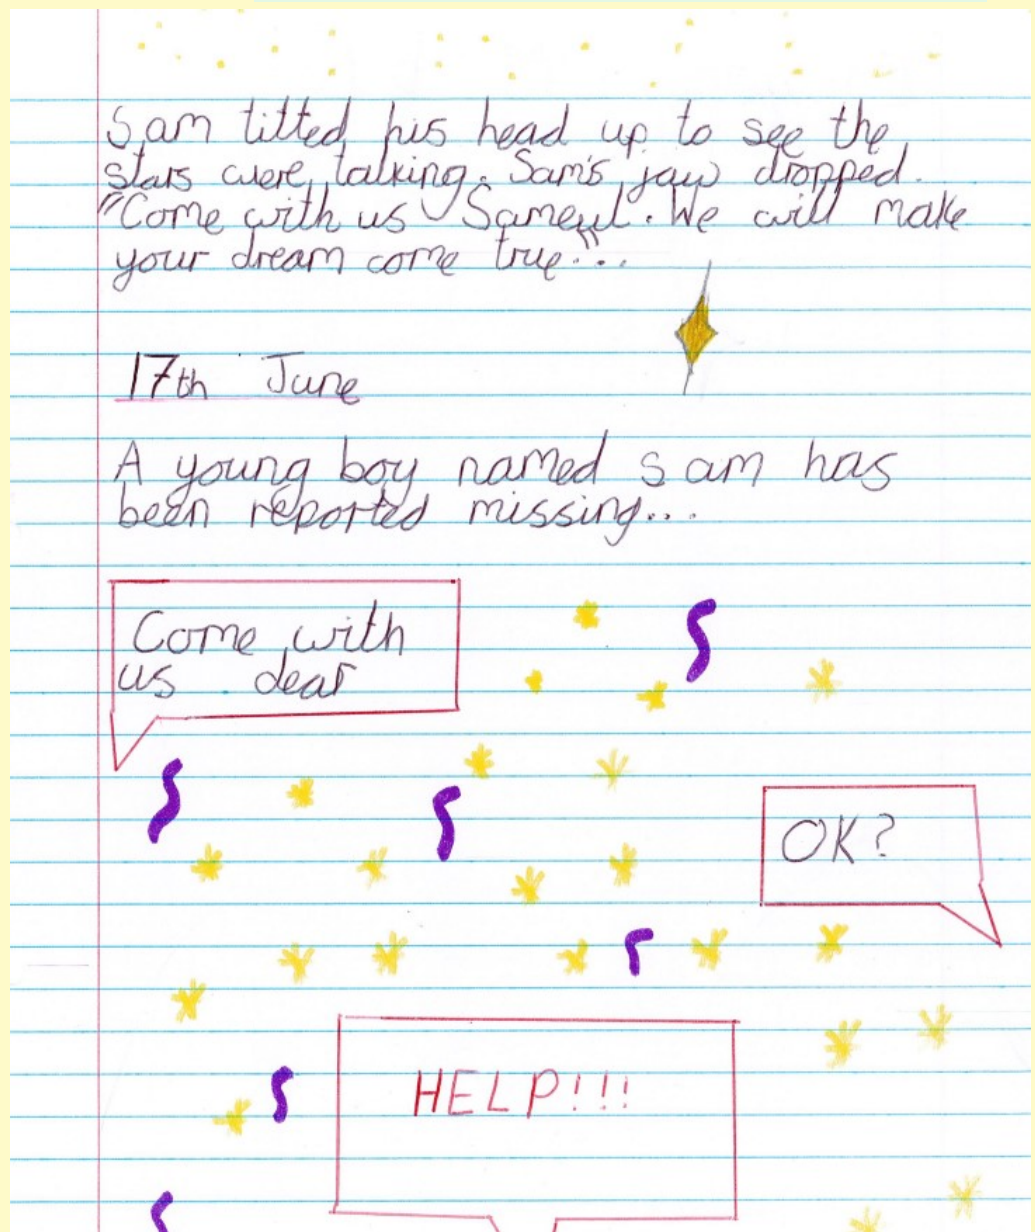 Sam titted his head up to see the
stars were talking. Sam's jaw dropped.
"Come with us Sameul. We will make
your dream come true"...
17th June
A young boy named Sam has
been reported missing...
Come with
us dear
OK?
HELP!!!